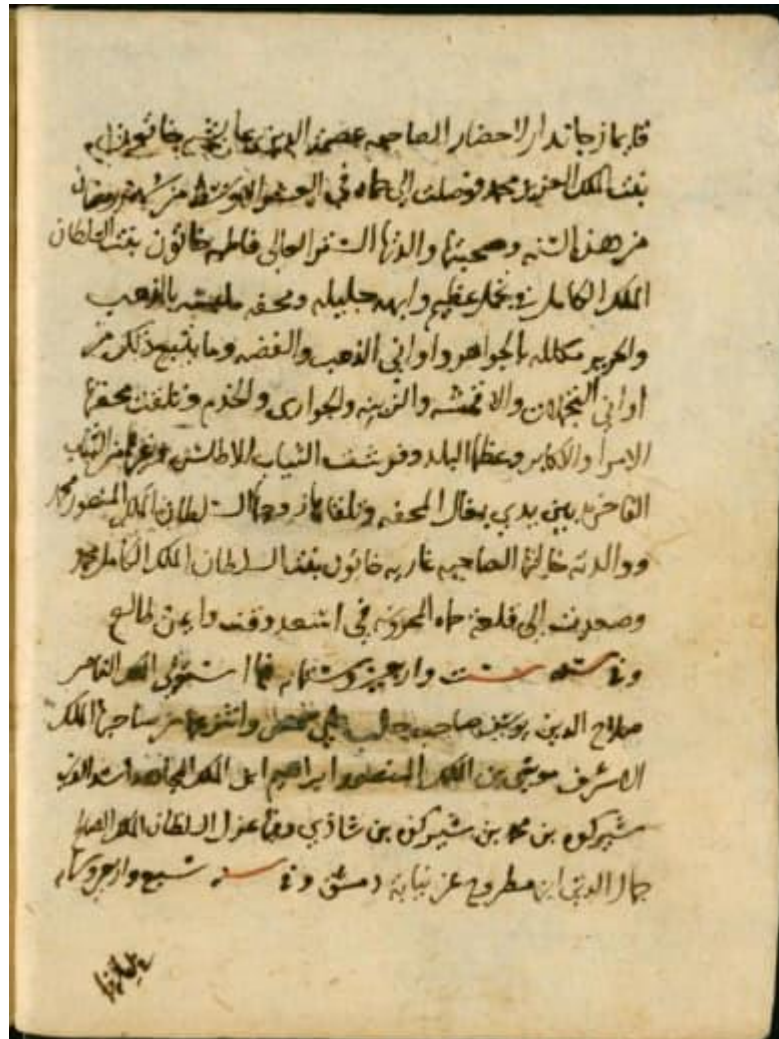 قايماز جاندار لاحضار الصاحبه عصمة الدين عايشه خاتون
بنت الملك العزيز محمد فوصلت الى حماه في العشر الاوسط من شهر رمضان
من هذه السنه وصحبتها والدتها الستر العالي فاطمه خاتون بنت السلطان
الملك الكامل في تجمل عظيم وابهه جليله ومحفه ملبسه بالذهب
والحرير مكلله بالجواهر واواني الذهب والفضه وما يتبع ذلك من
اواني والاقمشه والزينه والجواري والخدم وتلقت محفتها
الامرا والاكابر وعظما البلد وفرشت الثياب الاطلس وغيرها من الثياب
الفاخره بين يدي بغال المحفه وتلقاها زوجها السلطان الملك المنصور محمد
ووالدته خالتها الصاحبه غازيه خاتون بنت السلطان الملك الكامل محمد
وصعدت الى قلعة حماه المحروسه في اسعد وقت وايمن طالع
وفي سنه ست واربعين وستمايه فيها استولى الملك الناصر
صلاح الدين يوسف صاحب حلب على حمص وانتزعها من صاحبها الملك
الاشرف موسى بن الملك المنصور ابراهيم ابن الملك المجاهد اسد الدين
شيركوه بن محمد بن شيركوه بن شاذي وفيها عزل السلطان الملك الصالح
جمال الدين ابن مطروح عن نيابة دمشق وفي سنه سبع واربعين وستمايه